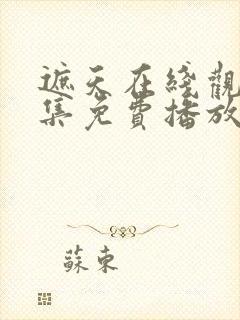 遮天在綫觀
集免費播放
蘇東